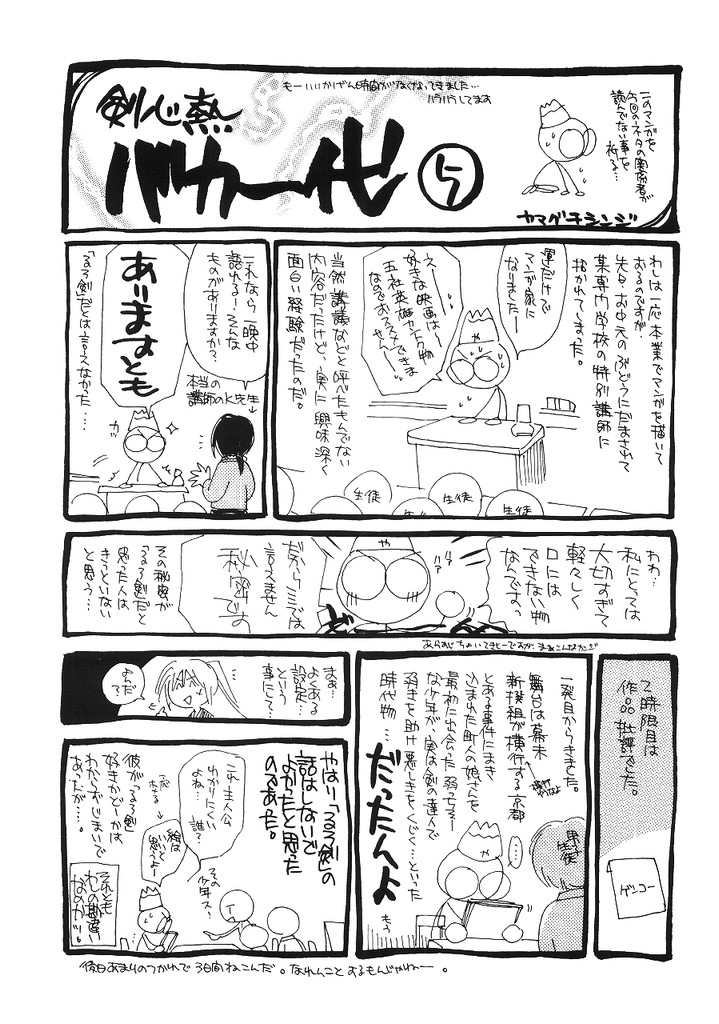 もーいいかげん時間がなくなってきました…
バラバラしてます
剣心熱
バカ一代
5
このマンガを
今回のネタの関係者が
読んでない事を
祈る…
ヤマグチシンジ
わしは一応本業でマンガを描いて
おるのですが、
先日、お中元のぶどうにだまされて
某専門学校の特別講師に
招かれてしまった。
運だけで
マンガ家に
なりましたー
えー…
好きな映画は〜
五社英雄カントク物
なのでおススメできま
せんー
や
当然講議などと呼べたもんでない
内容だったけど、実に興味深く
面白い経験だったのだ。
生徒
生徒
生徒
これなら一晩中
語れる!そんな
ものがありますか?
本当の
講師のK先生
ありますとも
ガッ
「るろ剣」だとは言えなかった…
わわ…
私にとっては
大切すぎて
軽々しく
口には
できない物
なんです。
や
ハア
ハア
だからここでは
言えません
秘密です
その秘密が
るろ剣だと
思った人は
きっといない
と思う…
あらすじちょいてきとーですが、まあこんなカンジ
2時限目は
作品批評でした。
ゲンコー
一発目からきました。
舞台は幕末
新撰組が横行する京都
とある事件にまき
込まれた町人の娘さんを
最初に出会った弱っちそー
な少年が、実は剣の達人で
弱きを助け悪しきをくじく…といった
時代物…
だったんよ
もう
男子
生徒
……
や
まぁ…
よくある
設定…
という
事にして…
よだ
ろ?
やはり「るろ剣」の
話はしないで
よかったと思った
のであった。
これ主人公
わかりにくい
よね…
誰?
その
少年ス?
絵は
いいと
思うよー
彼が「るろ剣」
好きかどーかは
わからずじまいで
あったが…。
それとも
わしの勘違い
なのか!?。
後日あまりのつかれで3日間ねこんだ。なれんことするもんじゃねー。